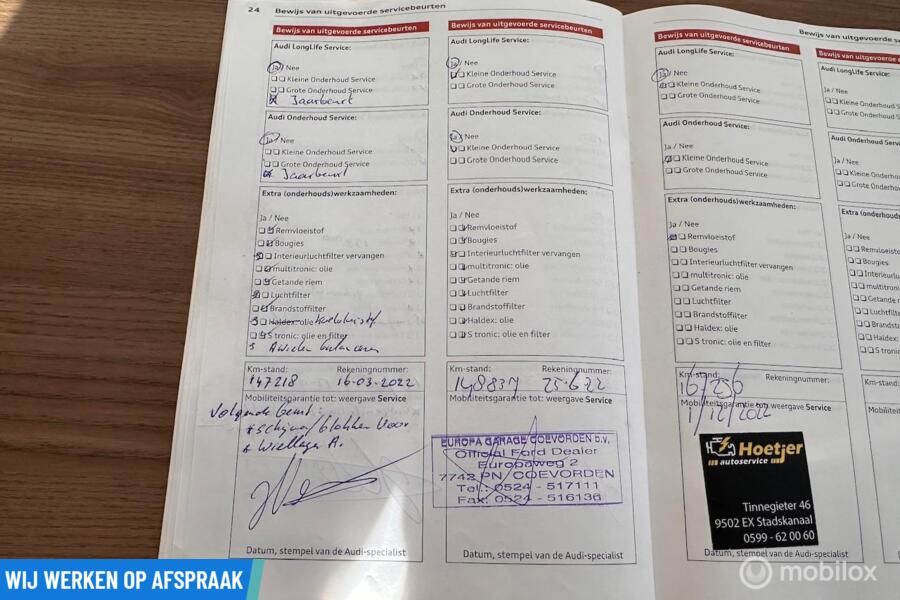 24 Bewijs van uitgevoerde servicebeurten
Bewijs van uitgevoerde servicebeurten
Audi LongLife Service:
Ja / Nee
Kleine Onderhoud Service
Grote Onderhoud Service
Jaarbeurt
Audi Onderhoud Service:
Ja / Nee
Kleine Onderhoud Service
Grote Onderhoud Service
Jaarbeurt
Extra (onderhouds)werkzaamheden:
Ja / Nee
Remvloeistof
Bougies
Interieurluchtfilter vervangen
multitronic: olie
Getande riem
Luchtfilter
Brandstoffilter
Haldex: olie Koelvloeistof
S tronic: olie en filter
4 wielen balanceren
Km-stand: Rekeningnummer:
147218 16-03-2022
Mobiliteitsgarantie tot: weergave Service
Volgende beurt:
schijven/blokken Voor
Wiellager A.
Datum, stempel van de Audi-specialist
Bewijs van uitgevoerde servicebeurten
Audi LongLife Service:
Ja / Nee
Kleine Onderhoud Service
Grote Onderhoud Service
Audi Onderhoud Service:
Ja / Nee
Kleine Onderhoud Service
Grote Onderhoud Service
Extra (onderhouds)werkzaamheden:
Ja / Nee
Remvloeistof
Bougies
Interieurluchtfilter vervangen
multitronic: olie
Getande riem
Luchtfilter
Brandstoffilter
Haldex: olie
S tronic: olie en filter
Km-stand: Rekeningnummer:
148837 25-6-22
Mobiliteitsgarantie tot: weergave Service
EUROPA GARAGE COEVORDEN b.v.
Official Ford Dealer
Europaweg 2
7742 PN COEVORDEN
Tel.: 0524 - 517111
Fax: 0524 - 516136
Datum, stempel van de Audi-specialist
Bewijs van uitgevoerde servicebeurten
Bewijs van uitgevoerde servicebeurten
Audi LongLife Service:
Ja / Nee
Kleine Onderhoud Service
Grote Onderhoud Service
Audi Onderhoud Service:
Ja / Nee
Kleine Onderhoud Service
Grote Onderhoud Service
Extra (onderhouds)werkzaamheden:
Ja / Nee
Remvloeistof
Bougies
Interieurluchtfilter vervangen
multitronic: olie
Getande riem
Luchtfilter
Brandstoffilter
Haldex: olie
S tronic: olie en filter
Km-stand: Rekeningnummer:
Mobiliteitsgarantie tot: weergave Service
1/12/2022
Hoetjer
autoservice
Tinnegieter 46
9502 EX Stadskanaal
0599 - 62 00 60
Datum, stempel van de Audi-specialist
Bewijs van uitgevoerde
Audi LongLife Service:
Ja / Nee
Kleine Onderhoud
Grote Onderhoud
Audi Onderhoud
Ja / Nee
Kleine
Grote
Extra (onderhouds)
Ja / Nee
Remvloeistof
Bougies
Interieurlu
multitron
Getande
Luchtfilt
Brandst
Haldex
S tron
Km-stand:
Mobiliteit
WIJ WERKEN OP AFSPRAAK
mobilox